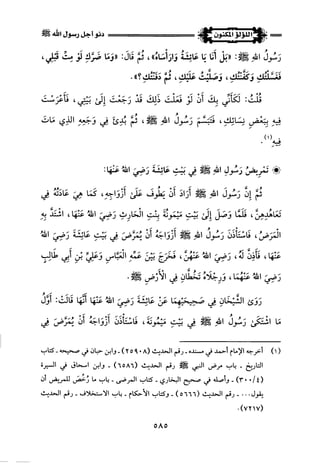 اللؤلؤ المكنون
دنو أجل رسول الله ﷺ
رَسُولُ اللهِ ﷺ: «بَلْ أَنَا يَا عَائِشَةُ وَارَأْسَاهُ»، ثُمَّ قَالَ: «وَمَا ضَرَّكِ لَوْ مِتِّ قَبْلِي،
فَغَسَّلْتُكِ وَكَفَّنْتُكِ، وَصَلَّيْتُ عَلَيْكِ، ثُمَّ دَفَنْتُكِ؟».
قُلْتُ: لَكَأَنِّي بِكَ أَنْ لَوْ فَعَلْتَ ذَلِكَ قَدْ رَجَعْتَ إِلَى بَيْتِي، فَأَعْرَسْتَ
فِيهِ بِبَعْضِ نِسَائِكَ، فَتَبَسَّمَ رَسُولُ اللهِ ﷺ، ثُمَّ بُدِئَ فِي وَجَعِهِ الذِي مَاتَ
فِيهِ(١).
تَمْرِيضُ رَسُولِ اللهِ ﷺ فِي بَيْتِ عَائِشَةَ رَضِيَ اللهُ عَنْهَا:
ثُمَّ إِنَّ رَسُولَ اللهِ ﷺ أَرَادَ أَنْ يَطُوفَ عَلَى أَزْوَاجِهِ، كَمَا هِيَ عَادَتُهُ فِي
تَعَاهُدِهِنَّ، فَلَمَّا وَصَلَ إِلَى بَيْتِ مَيْمُونَةَ بِنْتِ الحَارِثِ رَضِيَ اللهُ عَنْهَا، اشْتَدَّ بِهِ
المَرَضُ، فَاسْتَأْذَنَ رَسُولُ اللهِ ﷺ أَزْوَاجَهُ أَنْ يُمَرَّضَ فِي بَيْتِ عَائِشَةَ رَضِيَ اللهُ
عَنْهَا، فَأَذِنَّ لَهُ، رَضِيَ اللهُ عَنْهُنَّ، فَخَرَجَ بَيْنَ عَمِّهِ العَبَّاسِ وَعَلِيِّ بْنِ أَبِي طَالِبٍ
رَضِيَ اللهُ عَنْهُمَا، وَرِجْلَاهُ تَخُطَّانِ فِي الأَرْضِ ﷺ.
رَوَى الشَّيْخَانِ فِي صَحِيحَيْهِمَا عَنْ عَائِشَةَ رَضِيَ اللهُ عَنْهَا أَنَّهَا قَالَتْ: أَوَّلُ
مَا اشْتَكَى رَسُولُ اللهِ ﷺ فِي بَيْتِ مَيْمُونَةَ، فَاسْتَأْذَنَ أَزْوَاجَهُ أَنْ يُمَرَّضَ فِي
(١) أخرجه الإمام أحمد في مسنده ـ رقم الحديث (٢٥٩٠٨) ـ وابن حبان في صحيحه ـ كتاب
التاريخ ـ باب مرض النبي ﷺ ـ رقم الحديث (٦٥٨٦) ـ وابن إسحاق في السيرة
(٤/ ٣٠٠) ـ وأصله في صحيح البخاري ـ كتاب المرضى ـ باب ما رُخِّصَ للمريض أن
يقول... ـ رقم الحديث (٥٦٦٦) ـ وكتاب الأحكام ـ باب الاستخلاف ـ رقم الحديث
(٧٢١٧).
٥٨٥